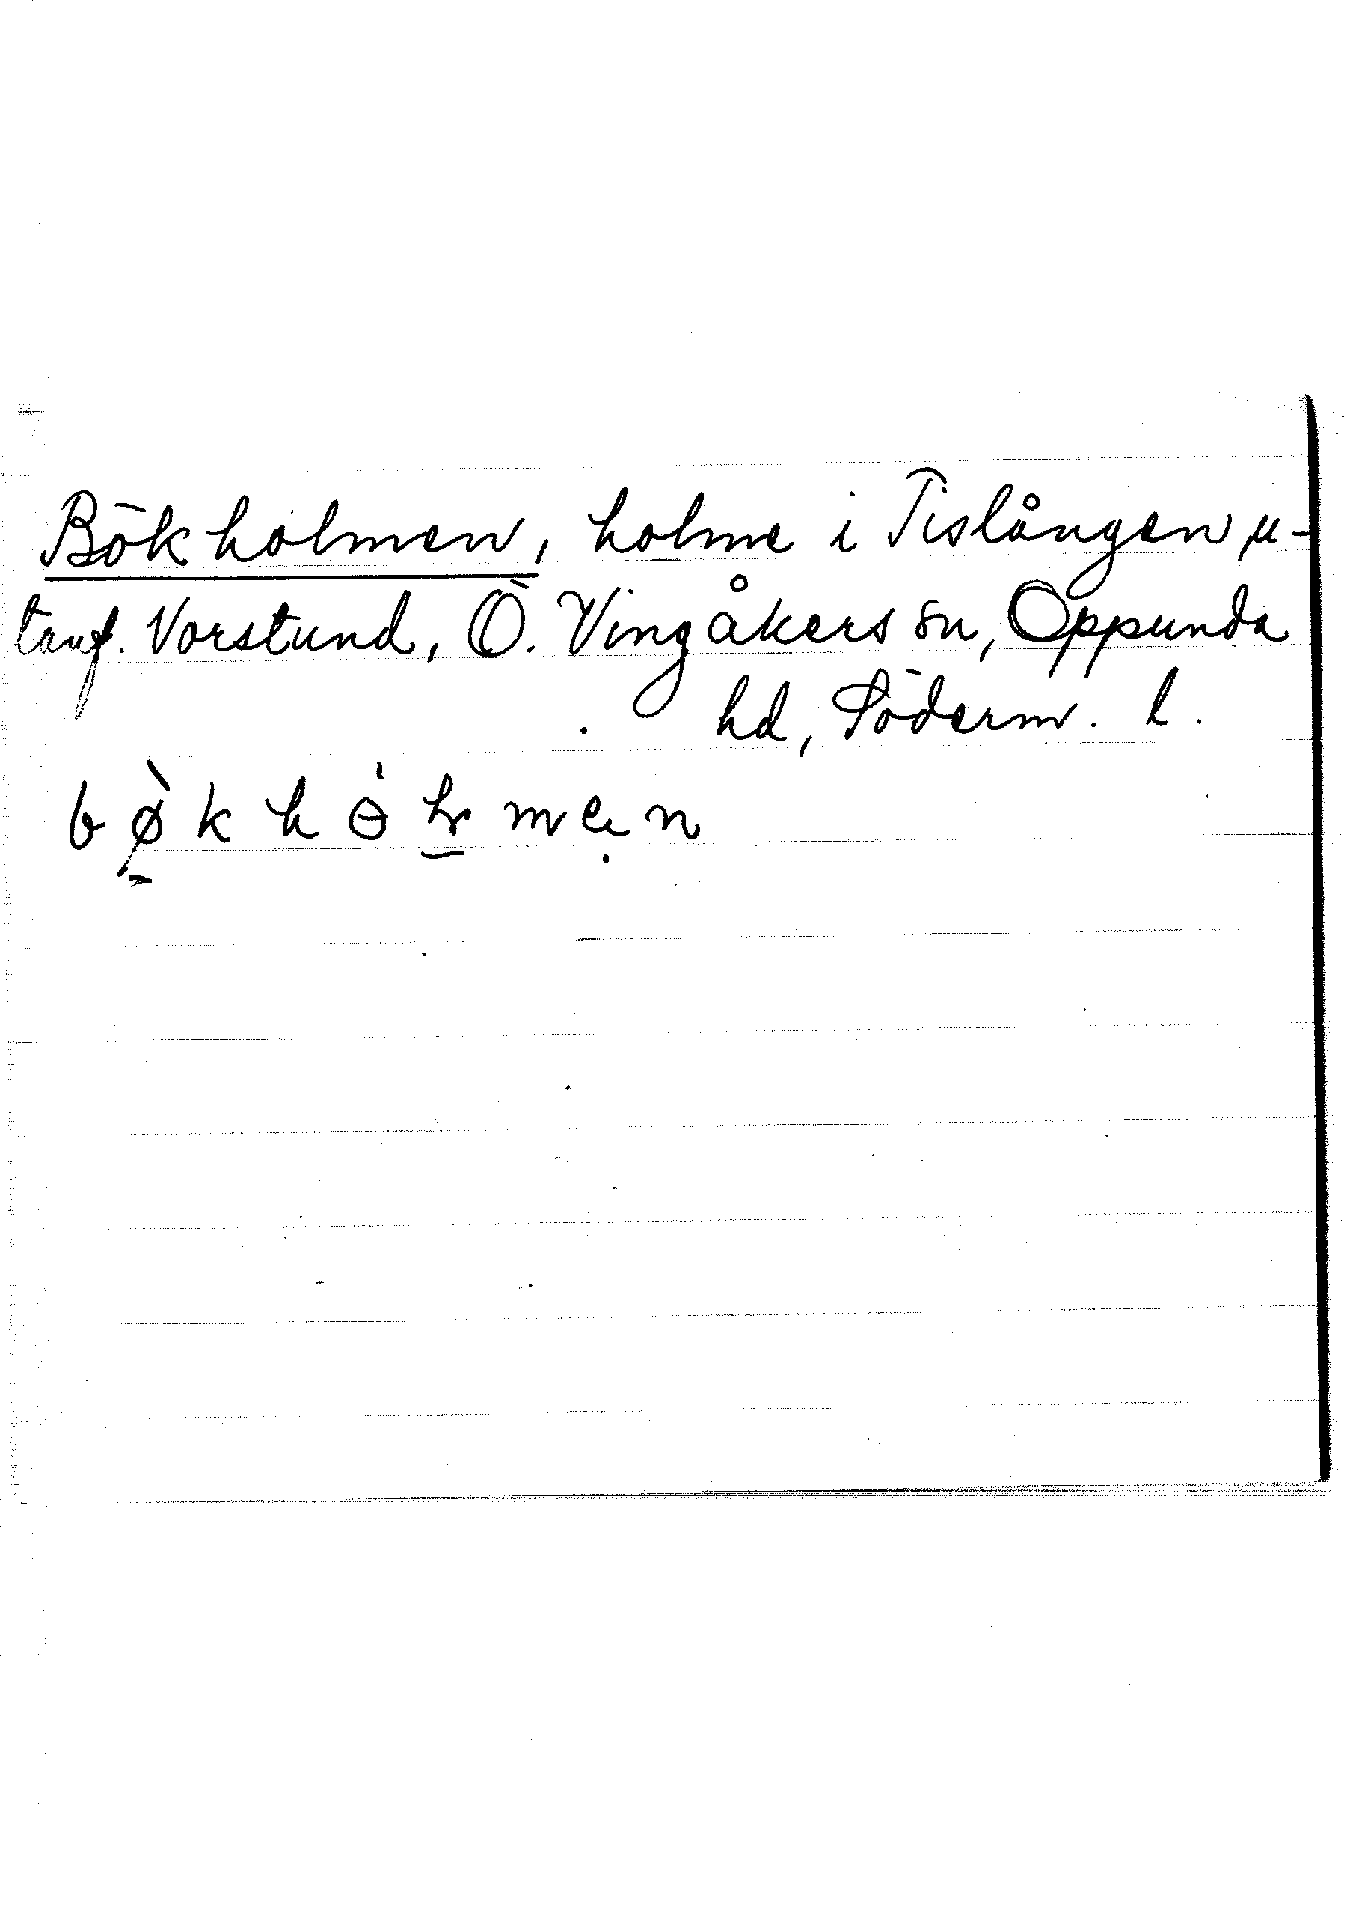 Bökholmen, holme i Tislången u-
tanf. Vorstund, Ö. Vingåkers sn, Oppunda
hd, Söderm. l.
bø̀khɵ̇lmen